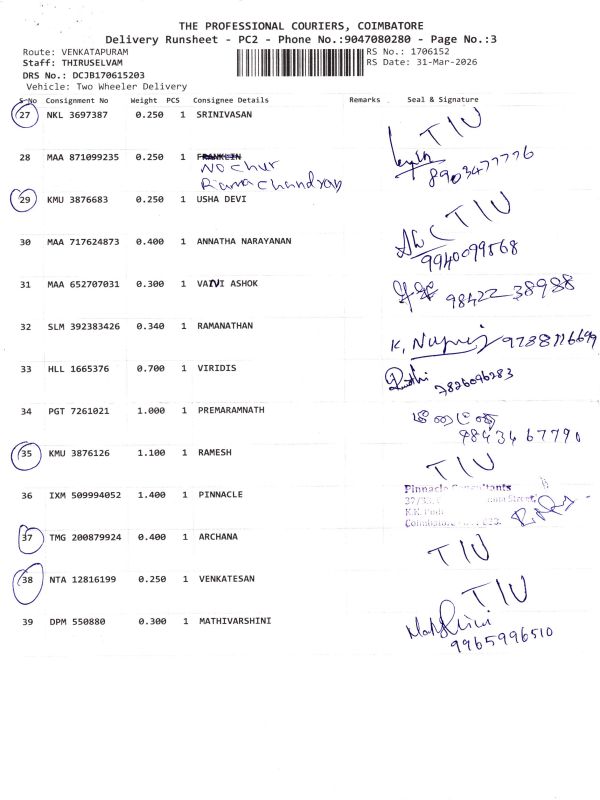 THE PROFESSIONAL COURIERS, COIMBATORE
Delivery Runsheet - PC2 - Phone No.:9047080280 - Page No.:3
Route: VENKATAPURAM RS No.: 1706152
Staff: THIRUSELVAM RS Date: 31-Mar-2026
DRS No.: DCJB170615203
Vehicle: Two Wheeler Delivery
S-No Consignment No Weight PCS Consignee Details Remarks . Seal & Signature
27 NKL 3697387 0.250 1 SRINIVASAN TIU
28 MAA 871099235 0.250 1 FRANKLIN
Nochur
Ramachandran 8903477776
29 KMU 3876683 0.250 1 USHA DEVI TIU
30 MAA 717624873 0.400 1 ANNATHA NARAYANAN
9940099568
31 MAA 652707031 0.300 1 VANI ASHOK 98422 38988
32 SLM 392383426 0.340 1 RAMANATHAN K.
33 HLL 1665376 0.700 1 VIRIDIS
7826096283
34 PGT 7261021 1.000 1 PREMARAMNATH
9843467790
35 KMU 3876126 1.100 1 RAMESH TIU
36 IXM 509994052 1.400 1 PINNACLE Pinnacle Consultants
37 TMG 200879924 0.400 1 ARCHANA TIU
38 NTA 12816199 0.250 1 VENKATESAN TIU
39 DPM 550880 0.300 1 MATHIVARSHINI
9965996510